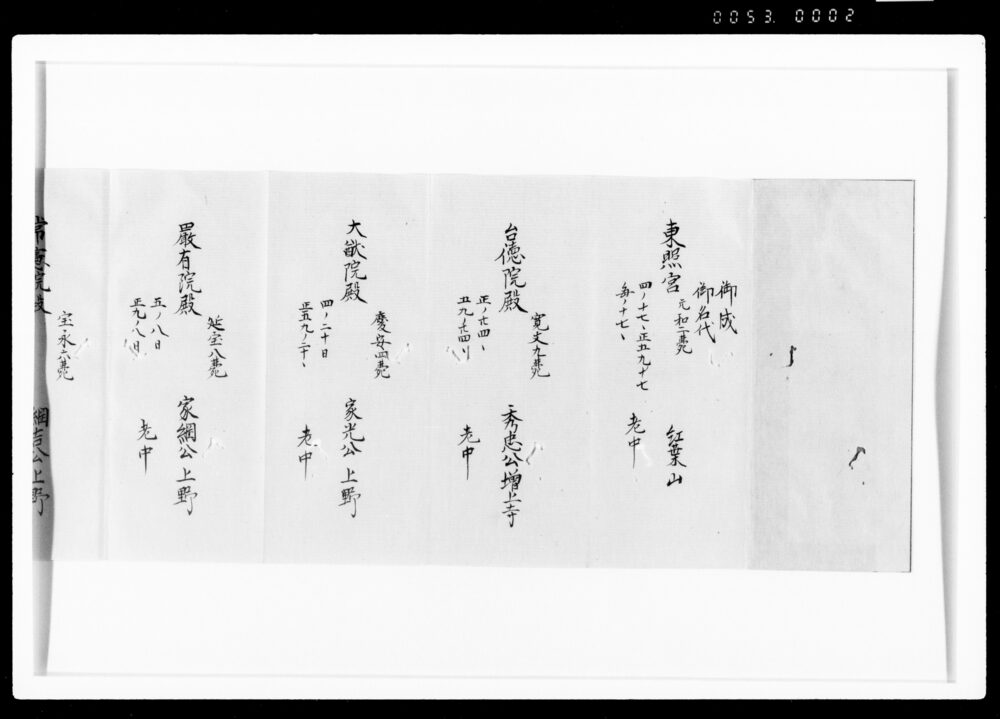 0053. 0002
御成
御名代
元和二薨
東照宮 紅葉山
四ノ十七、正五九十七
毎ノ十七、 老中
寛文九薨
台徳院殿 秀忠公増上寺
正ノ廿四、
五九ノ廿四日 老中
慶安四薨
大猷院殿 家光公上野
四ノ二十日
正五九ノ二十、 老中
延宝八薨
嚴有院殿 家綱公上野
五ノ八日
正九ノ八日 老中
宝永六薨
常憲院殿 綱吉公上野